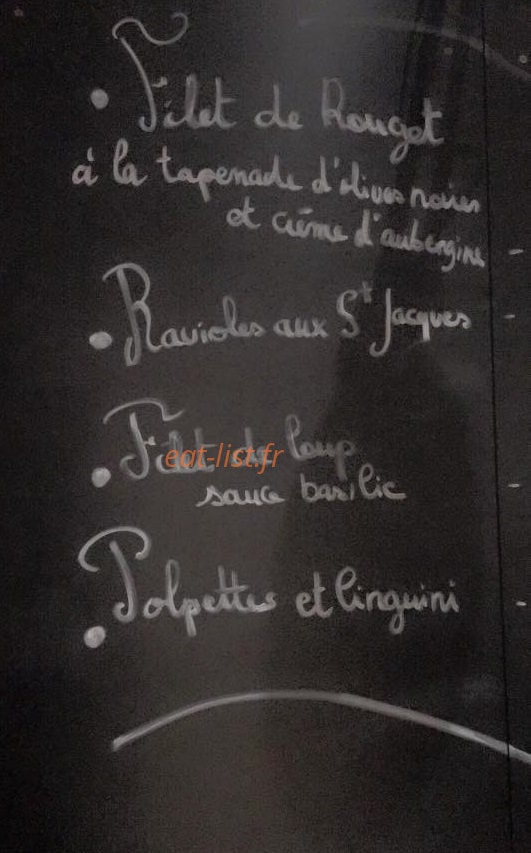 • Filet de Rouget
à la tapenade d'olives noires
et crème d'aubergine
• Ravioles aux St Jacques
• Filet de loup
eat-list.fr
sauce basilic
• Polpettes et linguini